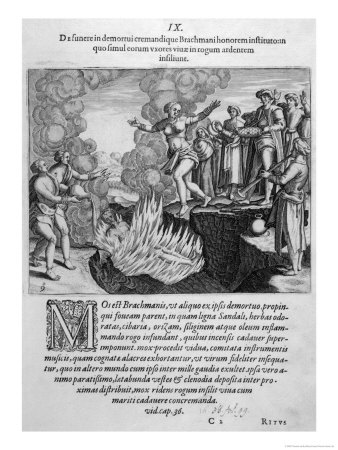 IX.
De funere in demortui cremandique Brachmani honorem instituto: in
quo simul eorum vxores viuæ in rogum ardentem
insiliunt.
9
MOs est Brachmanis, vt aliquo ex ipsis demortuo, propin-
qui foueam parent, in quam ligna Sandali, herbas odo-
ratas, cibaria, orizam, siliginem atque oleum inflam-
mando rogo infundant, quibus incensis cadauer super-
imponunt. mox procedit vidua, comitata instrumentis
musicis, quam cognatæ alacres exhortantur, vt virum fideliter insequa-
tur, quo in altero mundo cum ipso inter mille gaudia exultet. ipsa vero a-
nimo paratissimo, letabunda vestes & clenodia deposita inter pro-
ximas distribuit, mox ridens rogum insilit viua cum
mariti cadauere concremanda.
vid. cap. 36.
C 2
RITVS